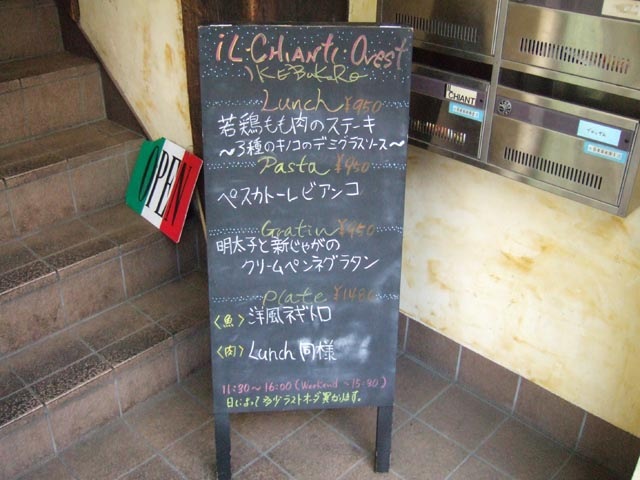 iL CHIANTI Ovest
IKEBUKURO
Lunch ¥950
若鶏もも肉のステーキ
～3種のキノコのデミグラスソース～
Pasta ¥950
ペスカトーレビアンコ
Gratin ¥950
明太子と新じゃがの
クリームペンネグラタン
Plate ¥1480
〈魚〉洋風ネギトロ
〈肉〉Lunch同様
11:30～16:00(Weekend ~15:30)
日によって多少ラストオーダー異なります。
OPEN
CHIANT